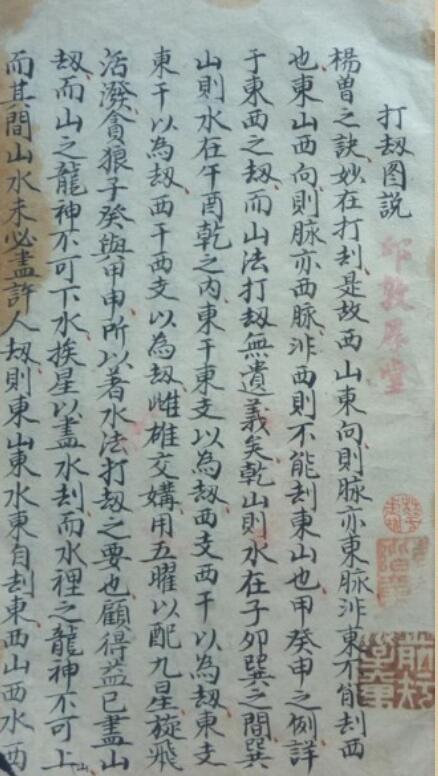 打刼图説
楊曽之訣妙在打刦是故西山東向則脉亦東脉非東不能刦西
也東山西向則脉亦西脉非西則不能刦東山也甲癸申之例詳
于東西之刼而山法打刼無遺義矣乾山則水在子卯巽之間巽
山則水在午酉乾之内東干東支以為刼西支西干以為刼東支
東干以為刼西干西支以為刼雌雄交媾用五曜以配九星旋飛
活潑貪狼子癸與甲申所以著水法打刼之要也顧得益已盡山
刼而山之龍神不可下水挨星以盡水刦而水裡之龍神不可上山
而其間山水未必盡許人刼則東山東水東自刦東西山西水西